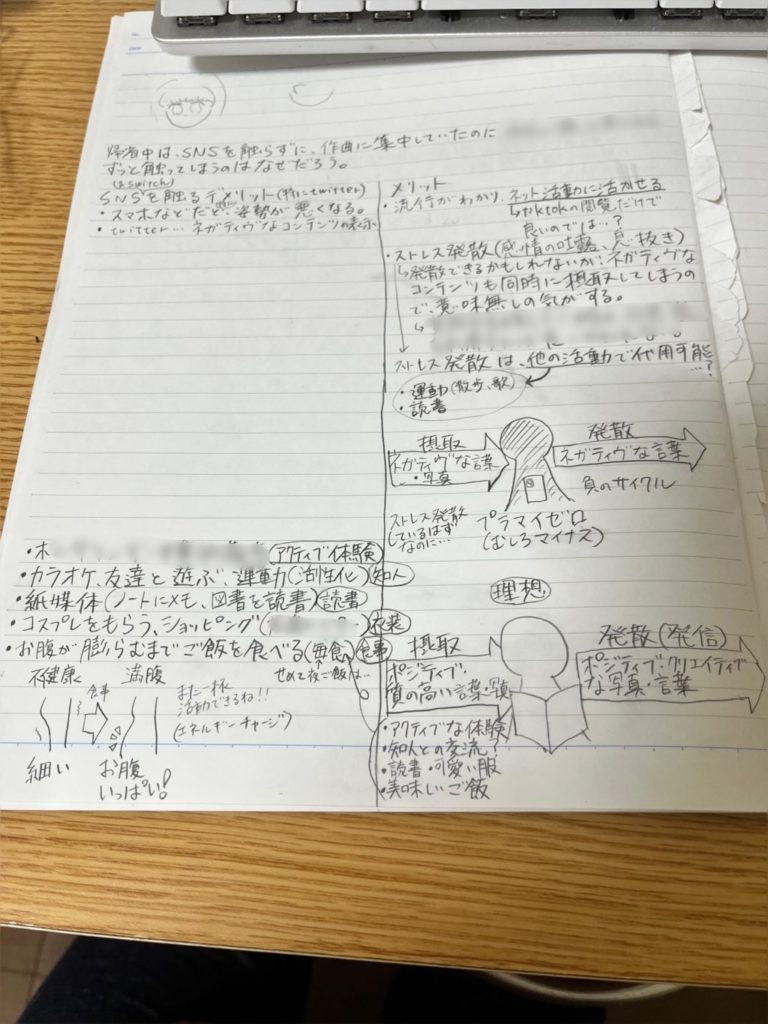 帰省中は、SNSを触らずに、作曲に集中していたのに
ずっと触ってしまうのはなぜだろう。
(とswitch)
SNSを触るデメリット(特にtwitter)
・スマホなどだと、姿勢が悪くなる。
・twitter…ネガティヴなコンテンツの表示
メリット
・流行がわかり、ネット活動に活かせる
↳tiktokの閲覧だけで
良いのでは…?
・ストレス発散(感情の吐露、息抜き)
↳発散できるかもしれないが、ネガティヴな
コンテンツも同時に摂取してしまうの
で、意味無しの気がする。
ストレス発散は、他の活動で代用可能
…?
・運動(散歩、歌)
・読書
摂取
ネガティヴな言葉
・写真
発散
ネガティヴな言葉
負のサイクル
ストレス発散
しているはず
なのに…
プラマイゼロ
(むしろマイナス)
アクティブ体験
・カラオケ、友達と遊ぶ、運動(活性化)知人
・紙媒体(ノートにメモ、図書を読書)読書
・コスプレをもらう、ショッピング 衣装
・お腹が膨らむまでご飯を食べる(毎食)食事
せめて夜ご飯は…
不健康
食事
満腹
また一杯
活動できるね!!
(エネルギーチャージ)
細い
お腹
いっぱい!
理想
摂取
ポジティブ・
質の高い言葉・写真
発散(発信)
ポジティブ・クリエイティブ
な写真・言葉
・アクティブな体験
・知人との交流?
・読書・可愛い服
・美味しいご飯